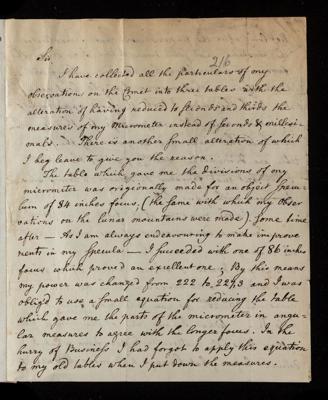 216
Sir,
I have collected all the particulars of my
observations on the Comet into three tables with the
alteration of having reduced to seconds and thirds the
measures of my Micrometer instead of Seconds & millesi-
mals. There is another small alteration of which
I beg leave to give you the reason.
The table which gave me the divisions of my
micrometer was originally made for an object specu-
lum of 84 inches focus, (the same with which my obser-
vations on the lunar mountains were made). Some time
after — As I am always endeavouring to make improve
ments in my Specula — I succeeded with one of 86 inches
focus which proved an excellent one; By this means
my power was changed from 222 to 227,3 and I was
obliged to use a small equation for reducing the table
which gave me the parts of the micrometer in angu-
lar measures to agree with the longer focus. In the
hurry of Business I had forgot to apply this equation
to my old tables when I put down the measures.